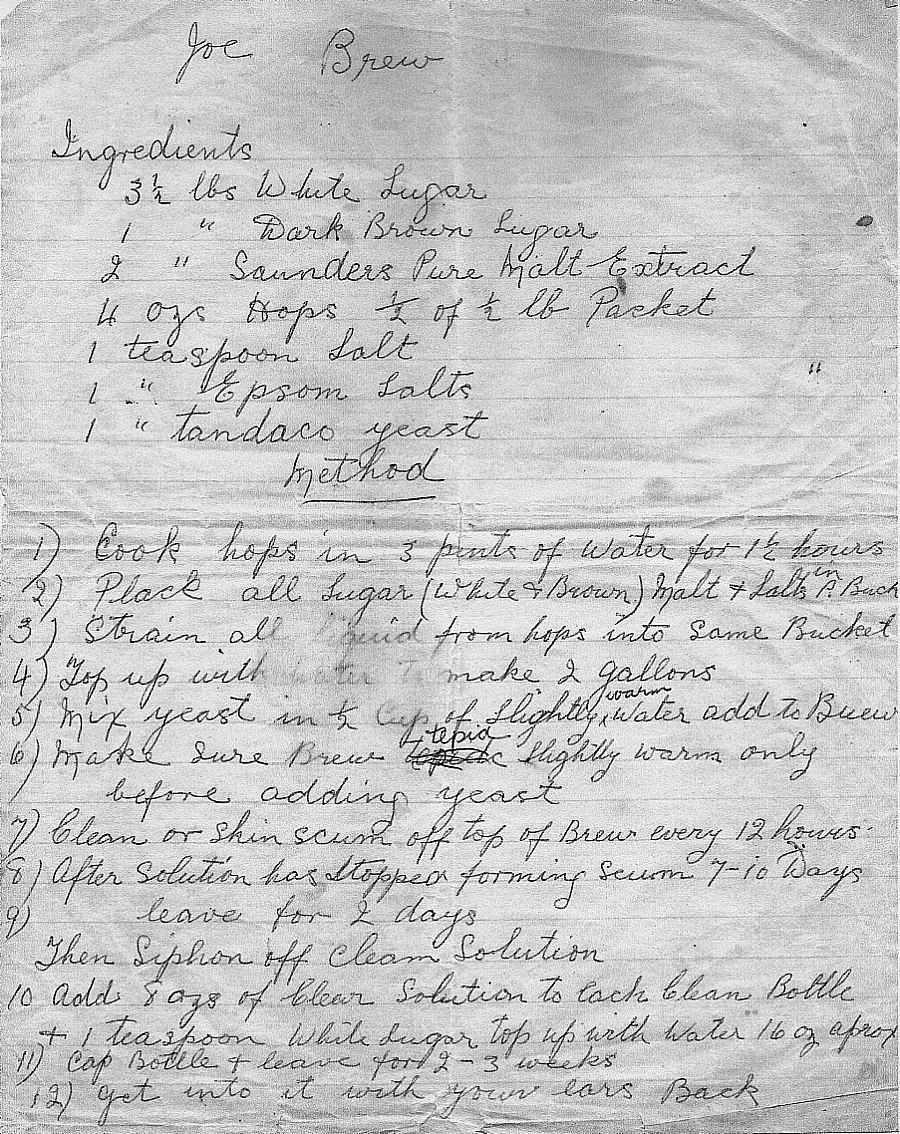 Joe Brew
Ingredients
3½ lbs White Sugar
1 " Dark Brown Sugar
2 " Saunders Pure Malt Extract
4 ozs Hops ½ of ½ lb Packet
1 teaspoon Salt
1 " Epsom Salts "
1 " tandaco yeast
Method
1) Cook hops in 3 pints of Water for 1½ hours
2) Plack all Sugar (White & Brown) Malt & Salts in A. Buck
3) Strain all liquid from hops into Same Bucket
4) Top up with water To make 2 gallons
5) Mix yeast in ½ Cup of Slightly warm Water add to Buew
6) Make Sure Brew tepid Slightly warm only
before adding yeast
7) Clean or Skin scum off top of Brew every 12 hours.
8) After Solution has Stopped forming Scum 7-10 Days
9) leave for 2 days
Then Siphon off Cleam Solution
10 Add 8 ozs of Clear Solution to Each Clean Bottle
+ 1 teaspoon White Sugar top up with Water 16 oz aprox
11) Cap Bottle & leave for 2 - 3 weeks
12) get into it with your ears Back